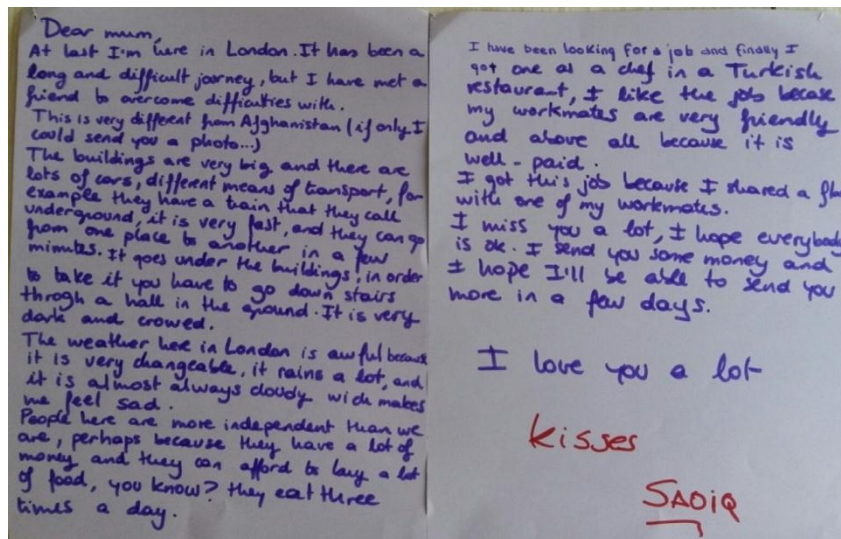 Dear mum,
At last I'm here in London. It has been a
long and difficult jorney, but I have met a
friend to overcome difficulties with.
This is very different from Afghanistan (if only I
could send you a photo...)
The buildings are very big and there are
lots of cars, different means of transport, for
example they have a train that they call
underground, it is very fast, and they can go
from one place to another in a few
minutes. It goes under the buildings, in order
to take it you have to go down stairs
throgh a hall in the ground. It is very
dark and crowed.
The weather here in London is awful because
it is very changeable, it rains a lot, and
it is almost always cloudy wich makes
me feel sad.
People here are more independent than we
are, perhaps because they have a lot of
money and they can afford to buy a lot
of food, you know? they eat three
times a day.
I have been looking for a job and finally I
got one as a chef in a Turkish
restaurant, I like the job becase
my workmates are very friendly
and above all because it is
well-paid.
I got this job because I shared a fla
with one of my workmates.
I miss you a lot, I hope everybody
is ok. I send you some money and
I hope I'll be able to send you
more in a few days.
I love you a lot
Kisses
SADIQ